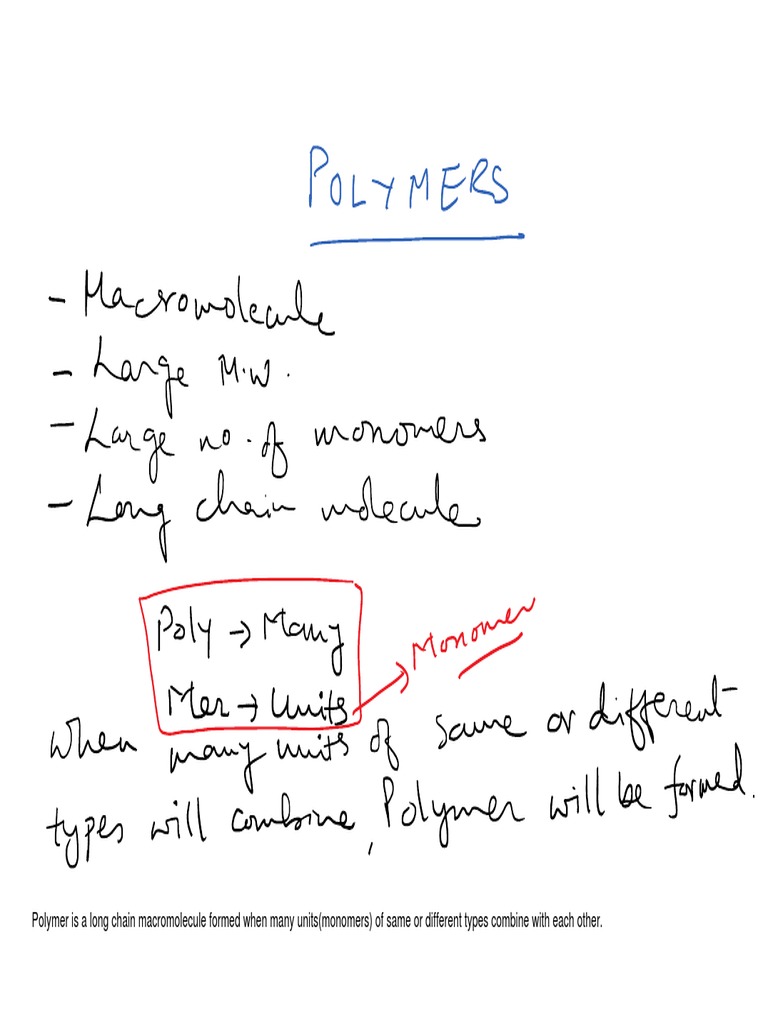 POLYMERS
- Macromolecule
- Large M.W.
- Large no. of monomers
- Long chain molecule
Poly → Many
Monomer
Mer → Units
When many units of same or different
types will combine, Polymer will be formed.
Polymer is a long chain macromolecule formed when many units(monomers) of same or different types combine with each other.